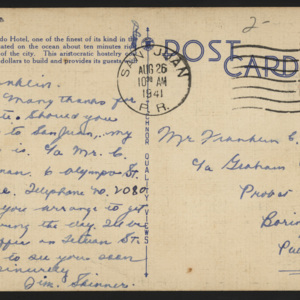 do Hotel, one of the finest of its kind in the
ated on the ocean about ten minutes
city. This aristocratic hostelry
dollars to build and provides its guests
2-
POST
CARD
SAN JUAN
AUG 26
10 AM
1941
P.R.
TANNOR QUALITY VIEWS
nklin.
Many thanks for
Should you
to San Juan, my
is c/o Mr. C.
man. 6 Olympo St.
Telephone no. 2080
you arrange to get
during the day. I've our
office on Tetuan St.
to see you soon
Sincerely
Jim. Skinner.
Mr Franklin C.
c/o Graham